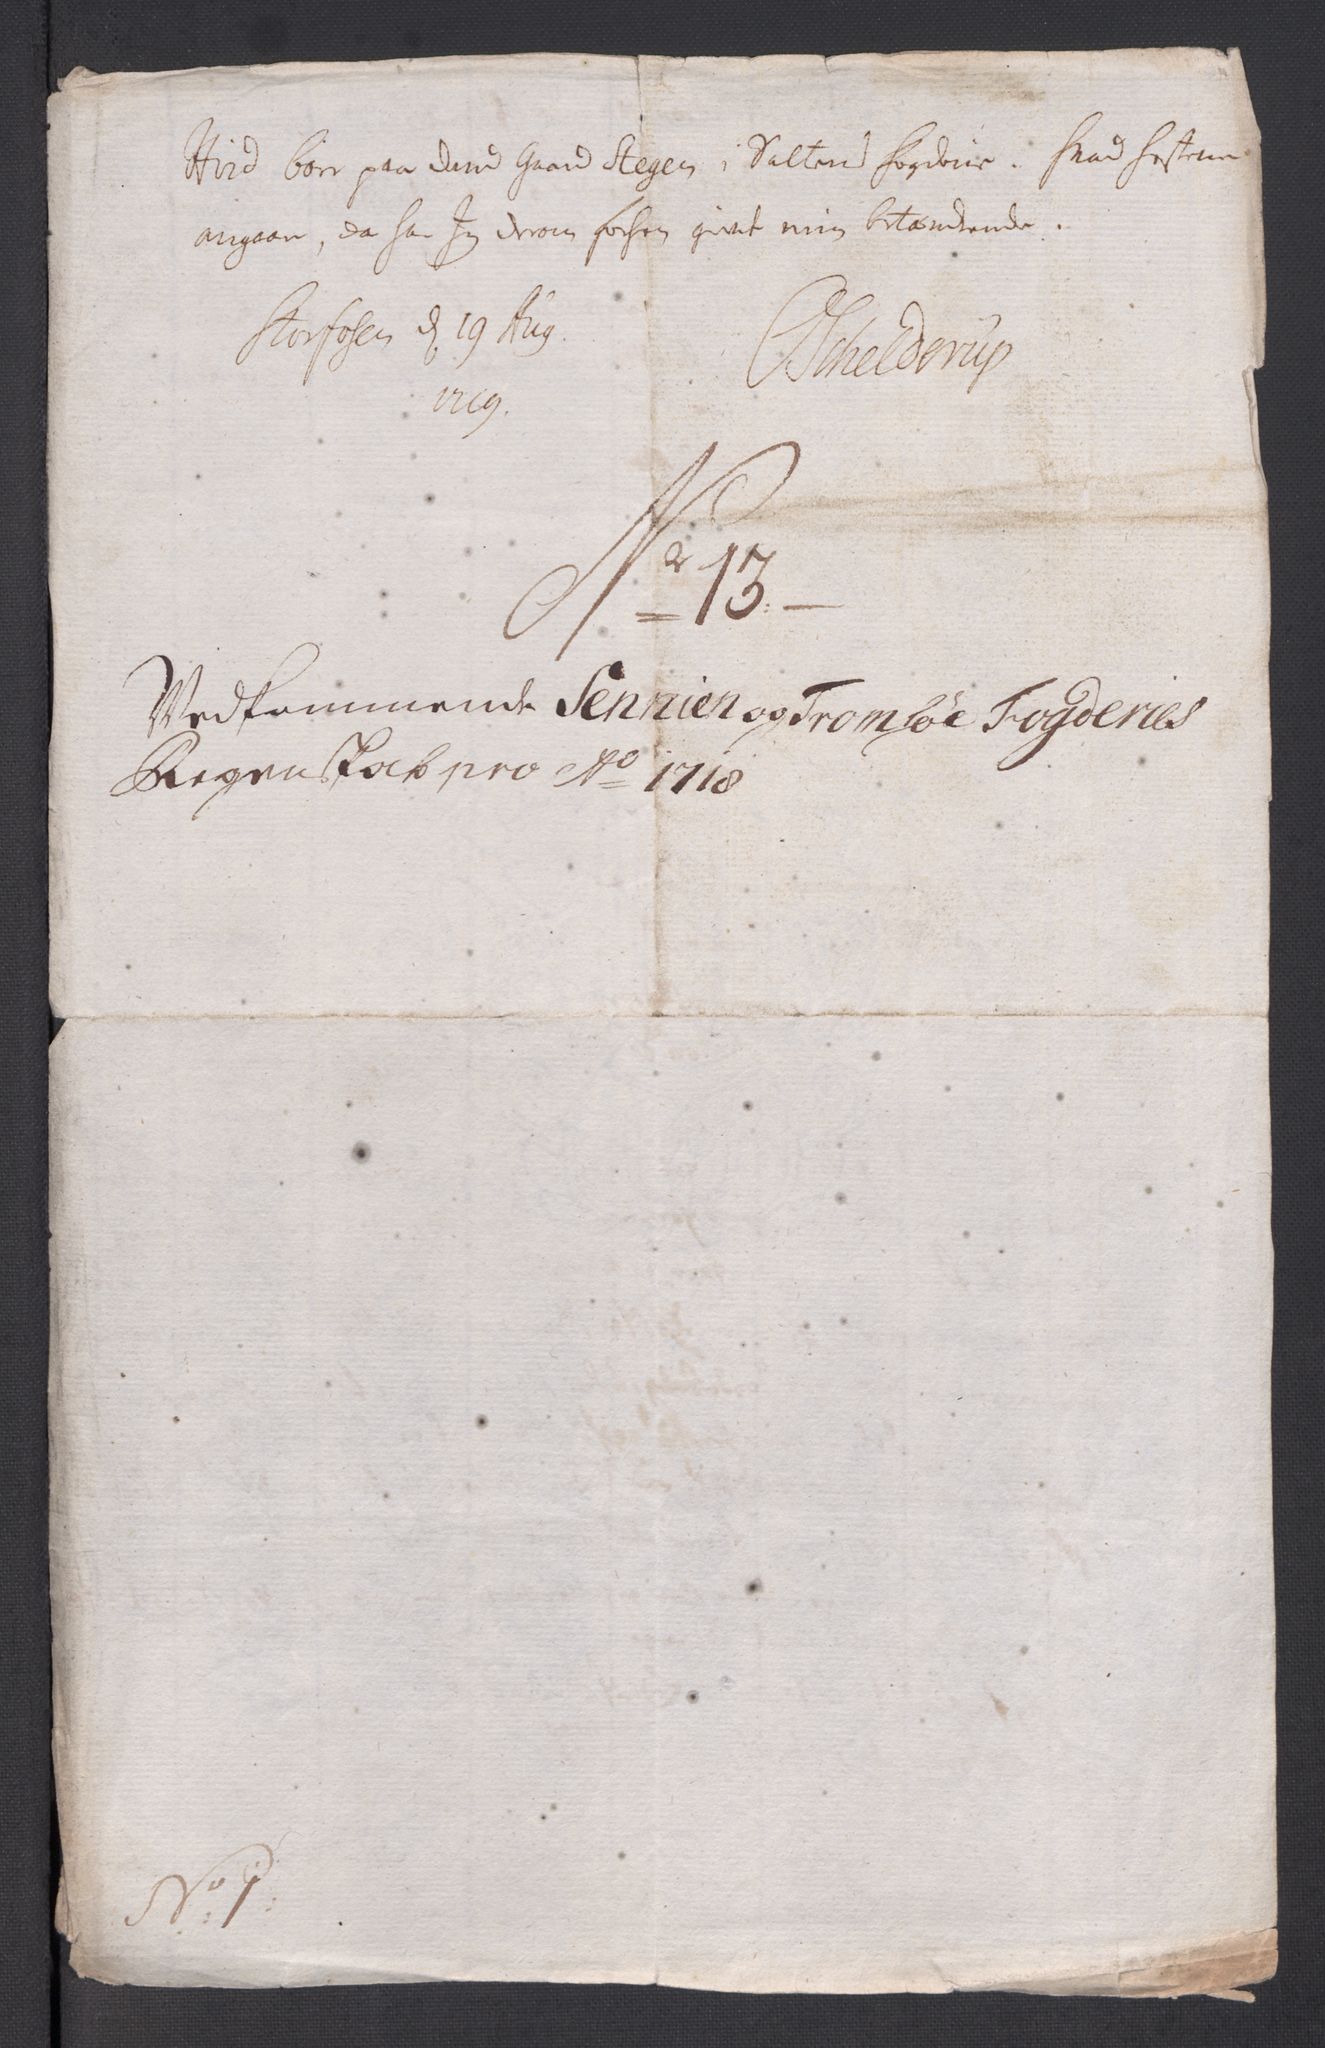 Hvid boer paa dend Gaard Stegen i Saltens fogderie. hvad hestene
angaar, da har Jeg derom forhen givet min betænkende.
Storfosen d. 19 Aug.
1719.
OSchelderup
No 13.
Vedkommende Sennien og Tromsöe Fogderies
Regenskab pro Ao 1718
No: 1: